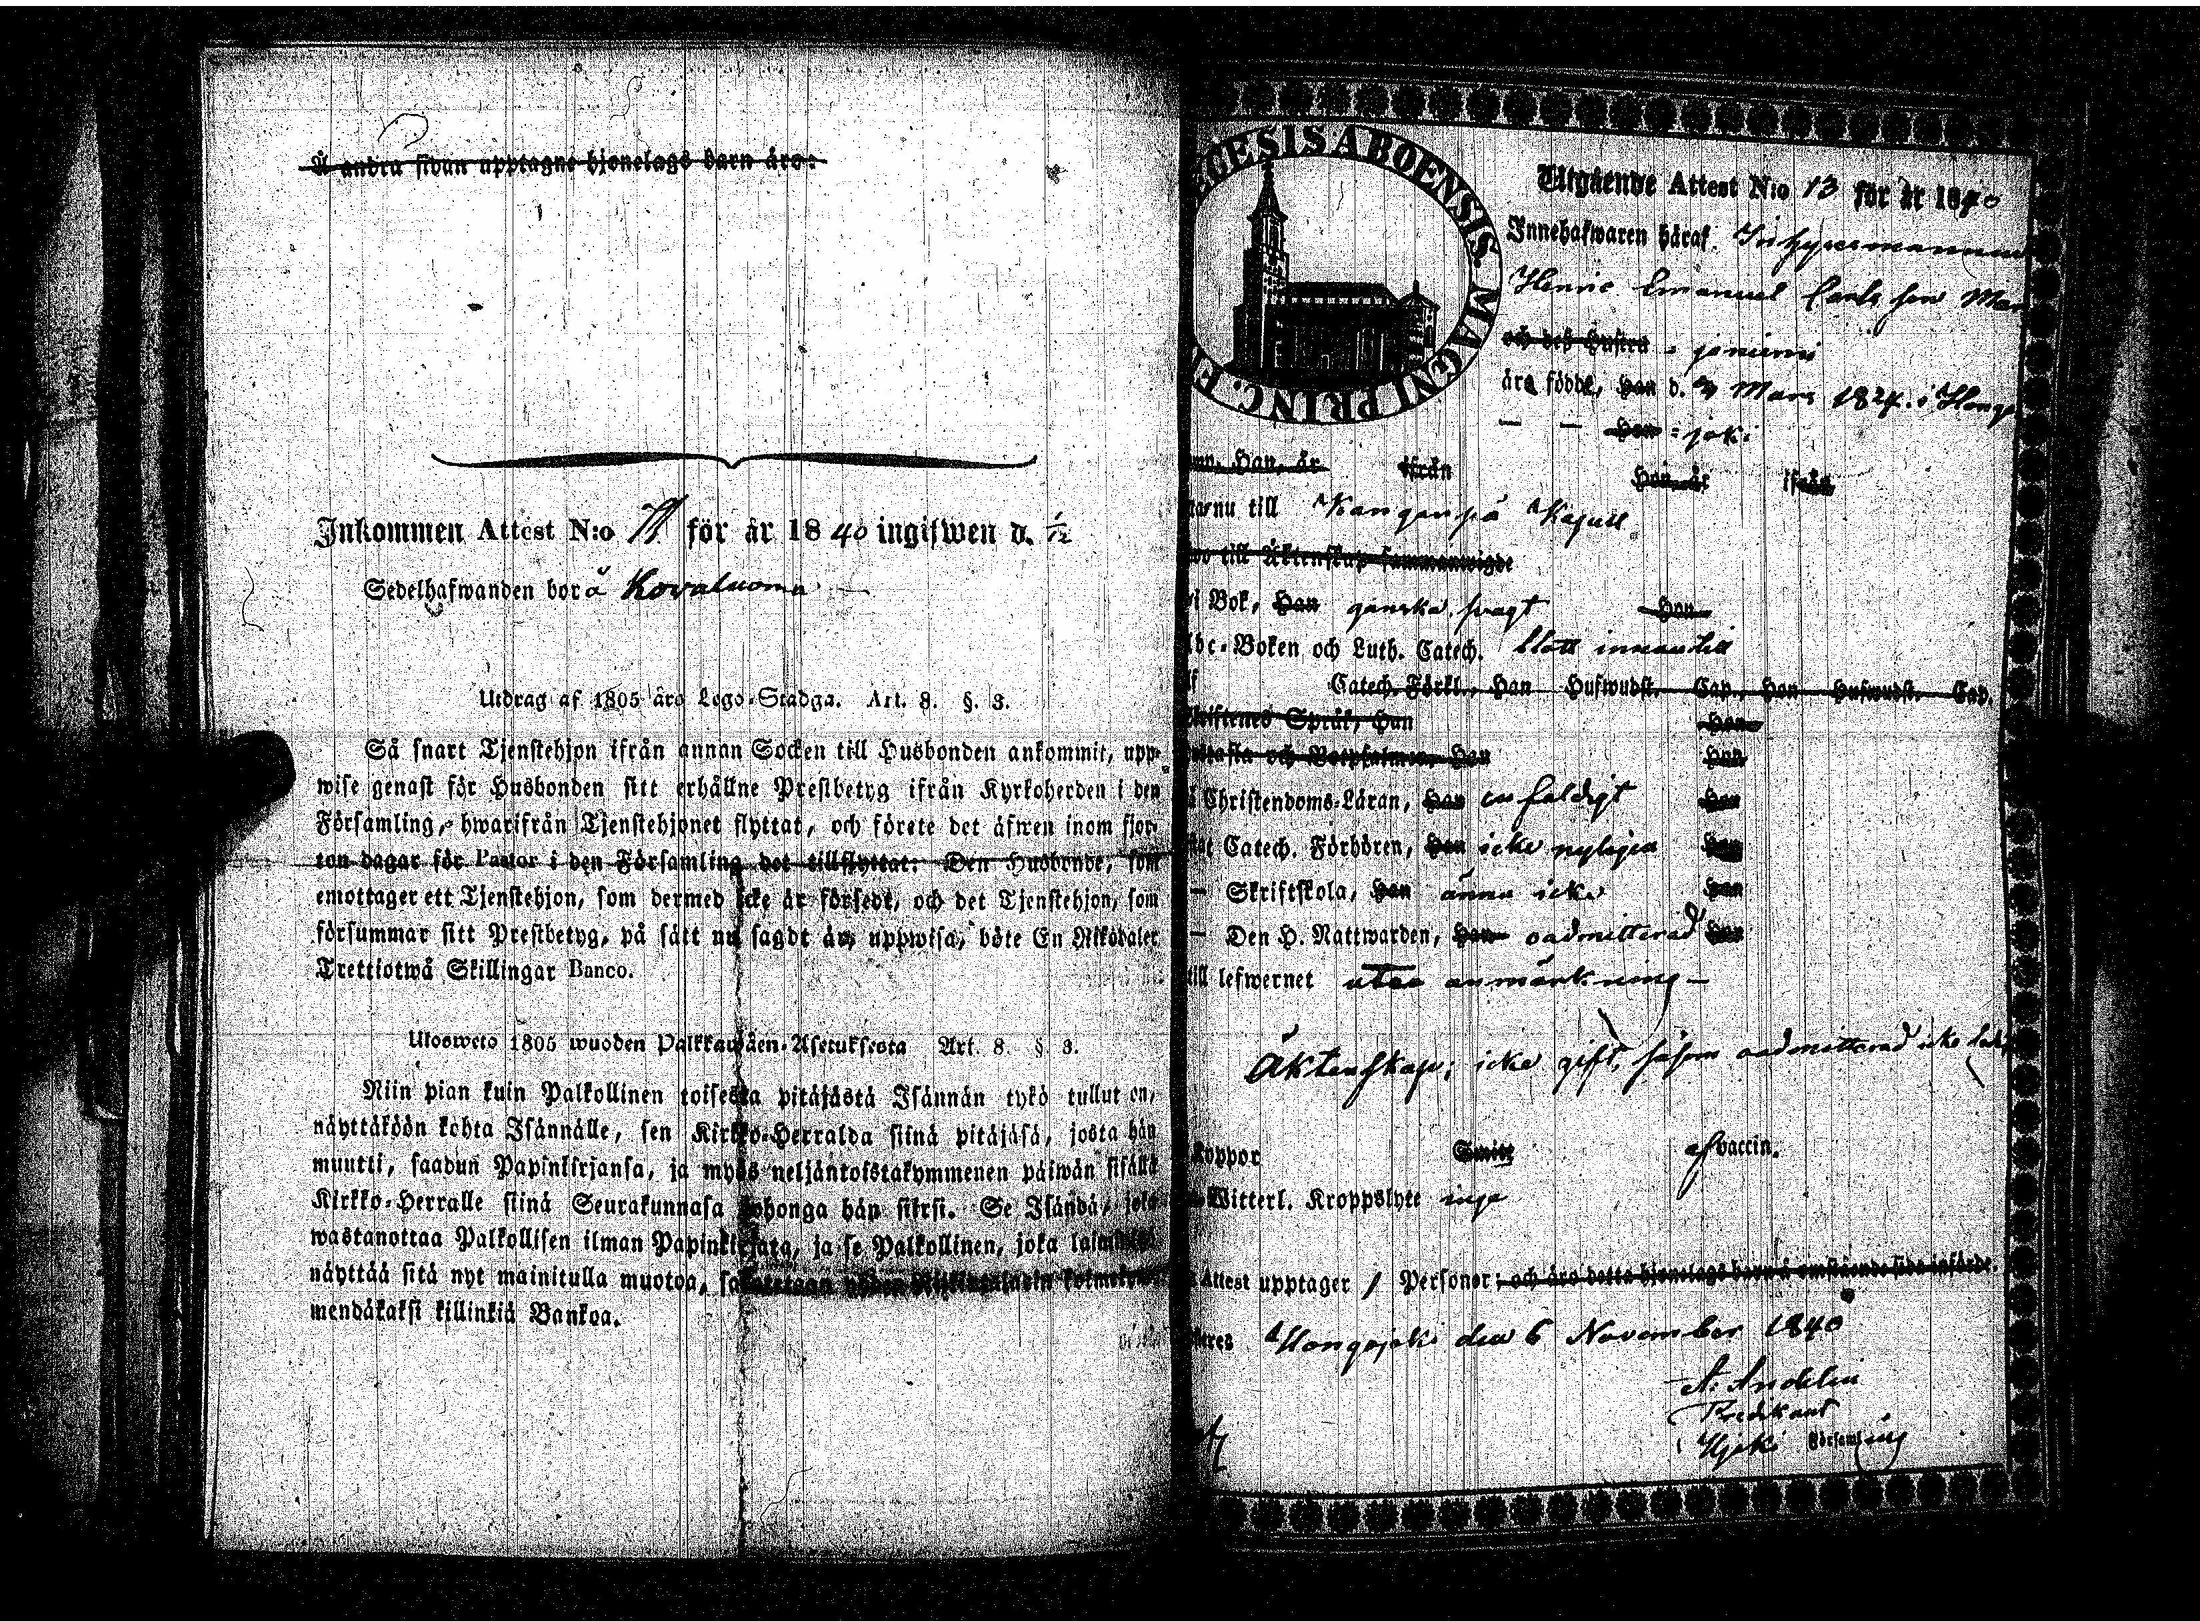 Å andra sidan upptagne hjonelags barn äro:
Inkommen Attest N:o för år 1840 ingifwen d. 1/12
Sedelhafwanden bor å Kovaluoma
Utdrag af 1805 års Lego-Stadga. Art. 8. §. 3.
Så snart Tjenstehjon ifrån annan Socken till Husbonden ankommit, upp-
wise genast för Husbonden sitt erhållne Prestbetyg ifrån Kyrkoherden i den
Församling, hwarifrån Tjenstehjonet flyttat, och förete det äfwen inom fjor-
ton dagar för Pastor i den Församling det tillflyttat: Den Husbonde, som
emottager ett Tjenstehjon, som dermed icke är försedt, och det Tjenstehjon, som
försummar sitt Prestbetyg, på sätt nu sagdt är, uppwisa, böte En Riksdaler
Trettiotwå Skillingar Banco.
Ulosweto 1805 wuoden Palkkawäen-Asetuksesta Art. 8. §. 3.
Niin pian kuin Palkollinen toisesta pitäjästä Isännän tykö tullut on,
näyttäköön kohta Isännälle, sen Kirkko-Herralda siinä pitäjäsä, josta hän
muutti, saadun Papinkirjansa, ja myös neljäntoistakymmenen päiwän sisällä
Kirkko-Herralle siinä Seurakunnasa johonga hän siirsi. Se Isändä, joka
wastanottaa Palkollisen ilman Papinkirjata, ja se Palkollinen, joka
näyttää sitä nyt mainitulla muotoa,
mendäkaksi killinkiä Bankoa.
ECGESIS ABOENSIS MAGNI PRINC. F
Utgående Attest N:o 13 för år 1840
Innehafwaren häraf
Henric Emanuel Carls son Mar
och des Hustru = janiemi
äro födde, han d. Mars 1824. i Hong
— — hon = joki
han, är ifrån hon, är ifrån
nu till Kanganpä Kapell
till Äktenskap sammanwigde
i Bok, han ganska swagt hon
Abc-Boken och Luth. Catech. blott innantill
Catech. Förkl., han Hufwudst. Cap., hon Hufwudst. Cap.
Skriftenes Språk, han hon
och Botpsalmen han hon
Christendoms-Läran, han enfaldigt hon
Catech. Förhören, han icke nyligen hon
— Skriftskola, han ännu icke hon
— Den H. Nattwarden, han oadmitterad hon
till lefwernet utan anmärkning —
Äktenskap; icke gift, såsom oadmitterad icke
koppor Smitt af vaccin.
Witterl. Kroppslyte inga
Attest upptager 1 Personer; och äro detta hjonelags barn å omstående sida införde.
Hongojoki den 6 November 1840
A. Andelin
Predikant
Hjoki Församling